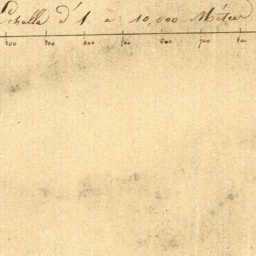 Echelle d'1 à 10,000 Mètres
200 300 400 500 600 700 800